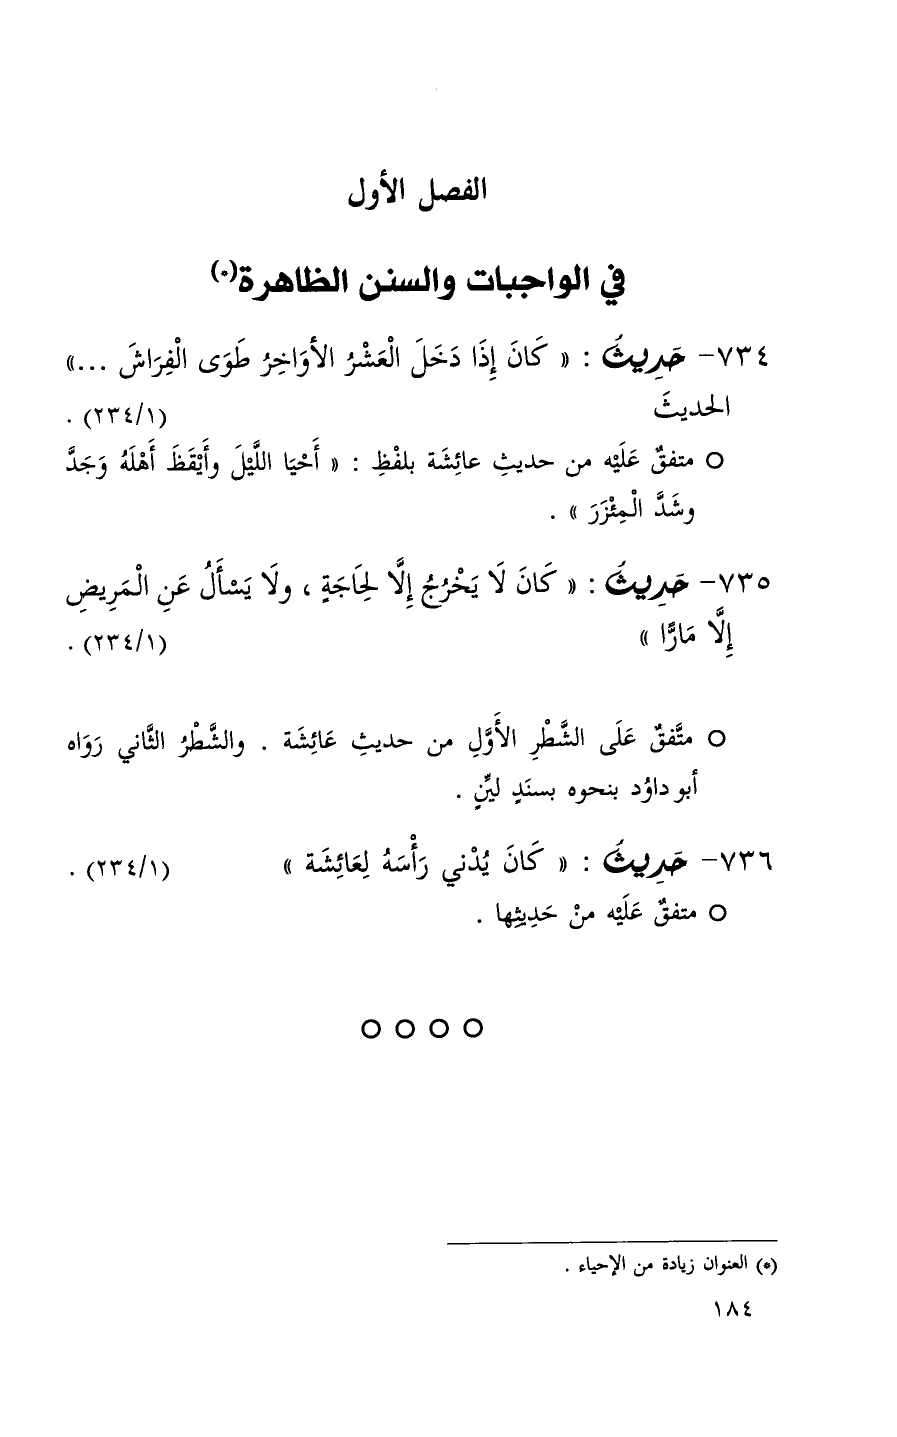 الفصل الأول
في الواجبات والسنن الظاهرة(*)
٧٣٤- حَدِيثُ : « كَانَ إِذَا دَخَلَ الْعَشْرُ الأوَاخِرُ طَوَى الْفِرَاشَ ...»
الحديثَ (٢٣٤/١) .
○ متفقٌ عَلَيْه من حديثِ عائِشَة بلفْظِ : « أَحْيَا اللَّيْلَ وأَيْقَظَ أَهْلَهُ وَجَدَّ
وشَدَّ الْمِئْزَرَ » .
٧٣٥- حَدِيثُ : « كَانَ لَا يَخْرُجُ إِلَّا لِحَاجَةٍ ، ولَا يَسْأَلُ عَنِ الْمَرِيضِ
إِلَّا مَارًّا » (٢٣٤/١) .
○ متَّفقٌ عَلَى الشَّطْرِ الأَوَّلِ من حديثِ عَائِشَة . والشَّطْرُ الثَّاني رَوَاه
أبو داوُد بنحوه بسنَدٍ ليِّنٍ .
٧٣٦- حَدِيثُ : « كَانَ يُدْني رَأْسَهُ لِعَائِشَة » (٢٣٤/١) .
○ متفقٌ عَلَيْه منْ حَدِيثِها .
○ ○ ○ ○
(*) العنوان زيادة من الإحياء .
١٨٤